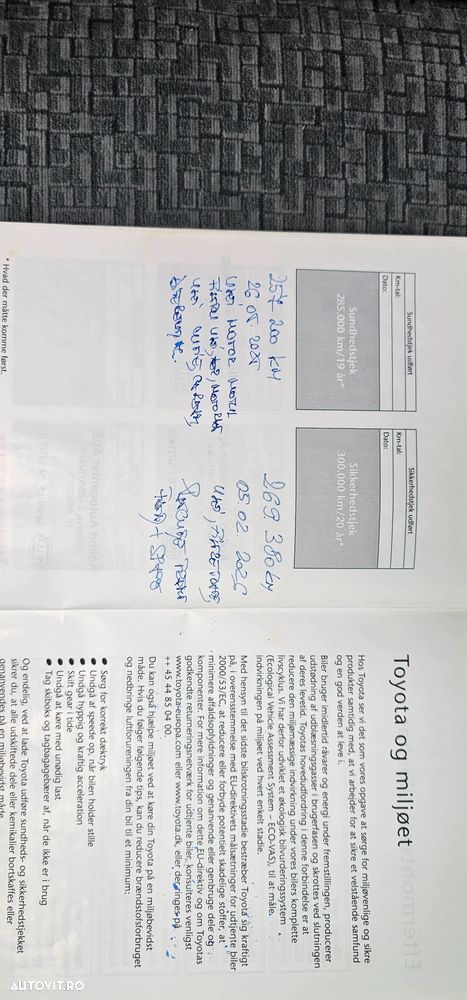 Sundhedstjek udført
Km-tal:
Dato:
Sundhedstjek
285.000 km/19 år*
257 200 KM
26 08
Sikkerhedstjek udført
Km-tal:
Dato:
Sikkerhedstjek
300.000 km/20 år*
269 380 KM
05 02
* Hvad der måtte komme først.
Toyota og miljøet
Hos Toyota ser vi det som vores opgave at sørge for miljøvenlige og sikre
produkter samtidig med, at vi arbejder for at sikre et velstående samfund
og en god verden at leve i.
Biler bruger imidlertid råvarer og energi under fremstillingen, producerer
udstødning af udblæsningsgasser i brugerfasen og skrottes ved slutningen
af deres levetid. Toyotas hovedudfordring i denne forbindelse er at
reducere den miljømæssige indvirkning under vores bilers komplette
livscyklus. Vi har derfor udviklet et økologisk bilvurderingssystem
(Ecological Vehicle Assessment System – ECO-VAS), til at måle
indvirkningen på miljøet ved hvert enkelt stadie.
Med hensyn til det sidste bilskrotningsstadie bestræber Toyota sig kraftigt
på, i overensstemmelse med EU-direktivets målsætninger for udtjente biler
2000/53/EC, at reducere eller forbyde potentielt skadelige stoffer, at
minimere affaldsoplysninger og genanvende eller genbruge dele og
komponenter. For mere information om dette EU-direktiv og om Toyotas
godkendte returneringsnetværk for udtjente biler, konsulteres venligst
www.toyota-europa.com eller www.toyota.dk, eller der ringes på
++ 45 44 85 04 00.
Du kan også hjælpe miljøet ved at køre din Toyota på en miljøbevidst
måde. Hvis du følger følgende tips, kan du reducere brændstofsforbruget
og nedbringe luftforureningen fra din bil til et minimum:
● Sørg for korrekt dæktryk
● Undgå af speede op, når bilen holder stille
● Undgå hyppig og kraftig acceleration
● Skift gear i tide
● Undgå at køre med unødig last
● Tag skiboks og tagbagagebærer af, når de ikke er i brug
Og endelig, ved at lade Toyota udføre sundheds- og sikkerhedstjekket
sikrer du, at alle udskiftede dele eller kemikalier bortskaffes eller
genanvendes på en miljøbevidst måde.
AUTOVIT.RO